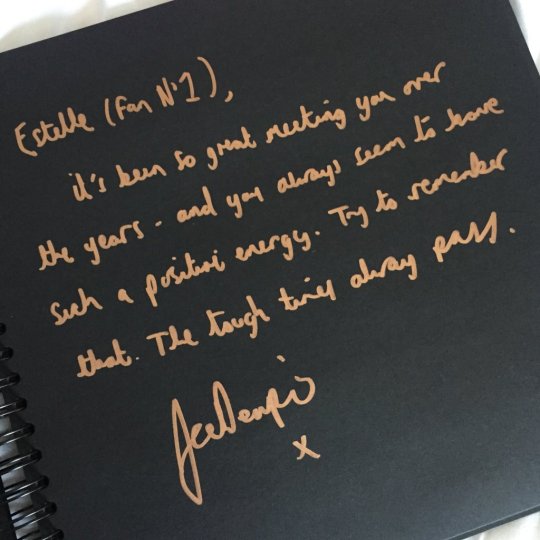 Estelle (Fan Nº1),
it's been so great meeting you over
the years - and you always seem to have
such a positive energy. Try to remember
that. The tough times always pass.
x